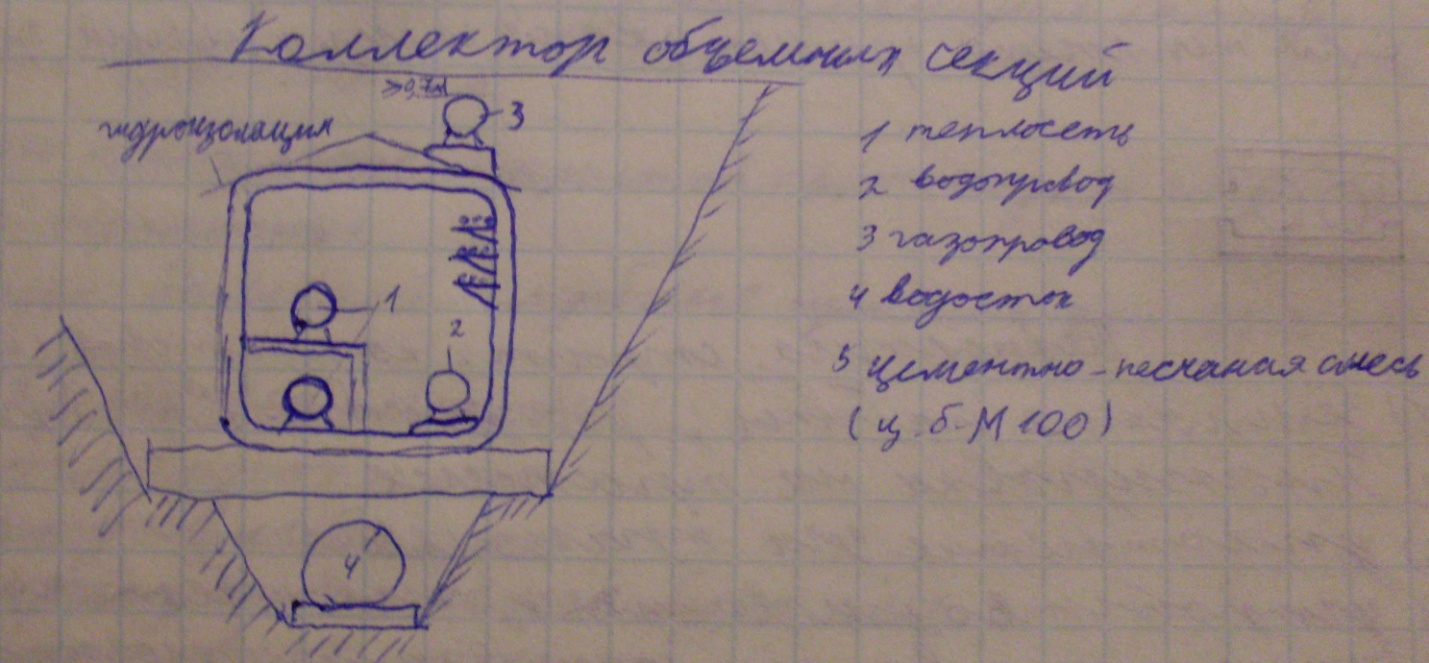 Коллектор объемных секций
≥0,7м
3
гидроизоляция
1 теплосеть
2 водопровод
3 газопровод
1
4 водосток
2
5 цементно-песчаная смесь
(ц.б-М100)
4